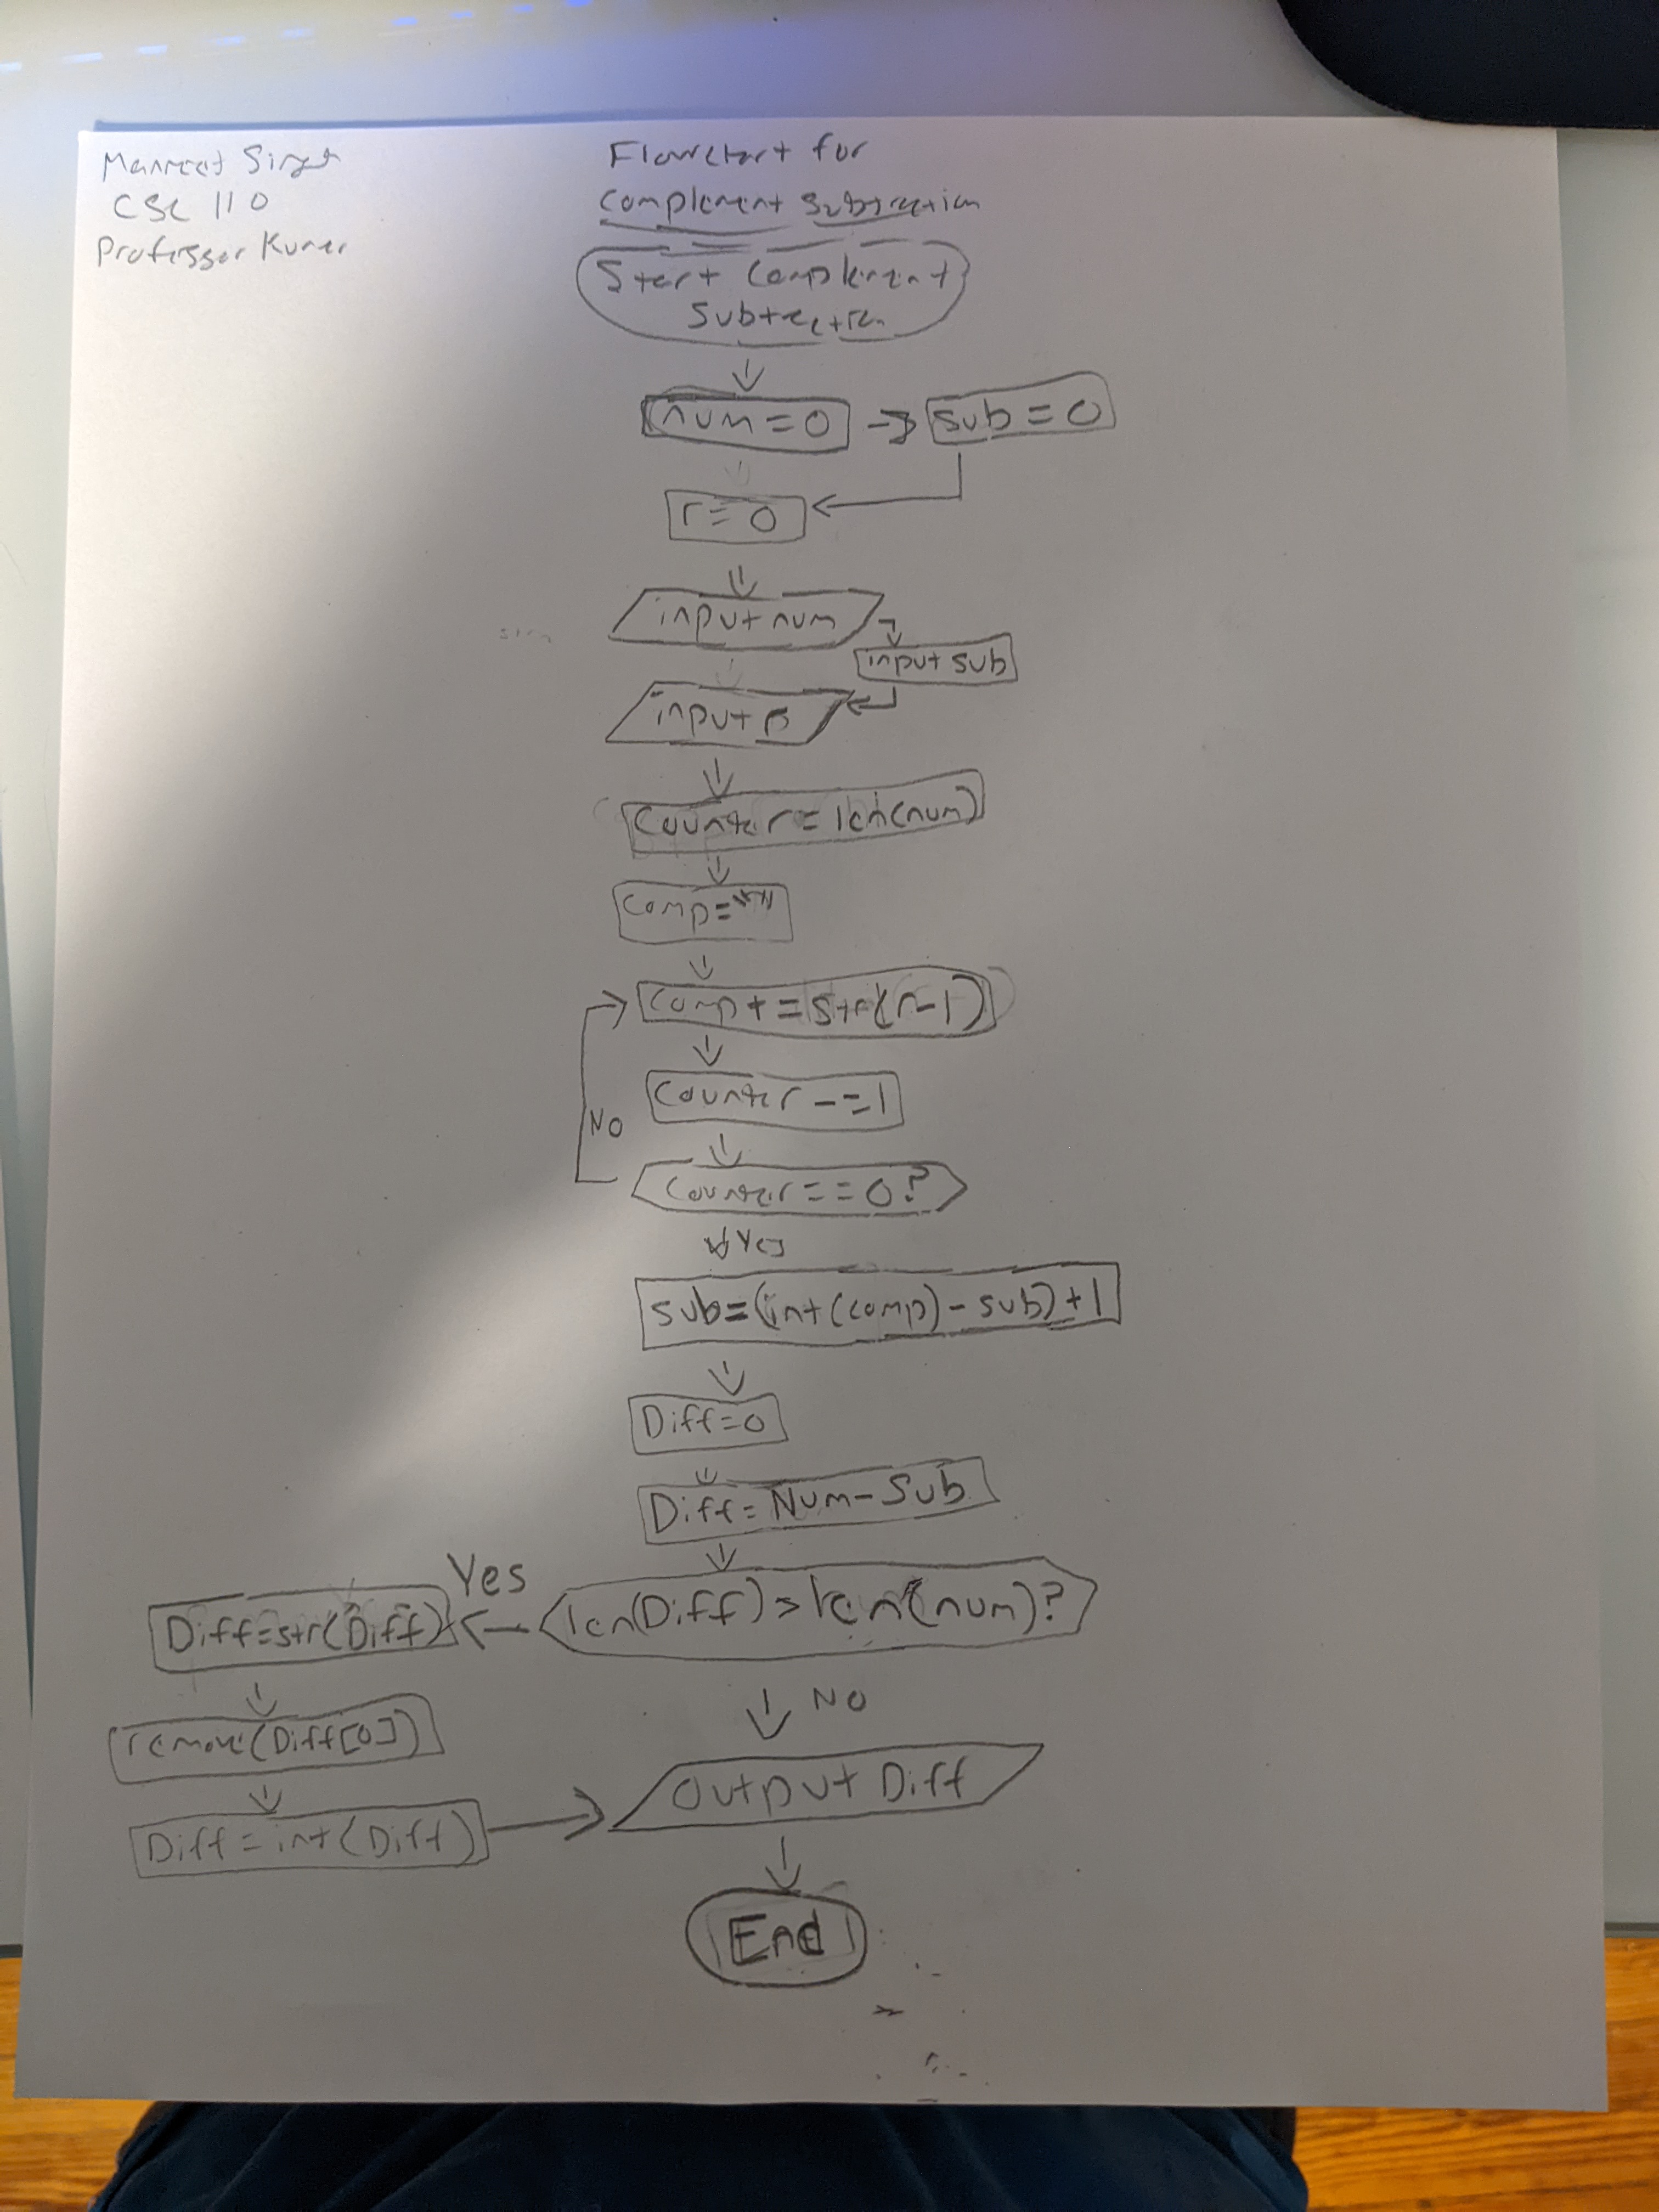 Manreet Singh
CSC 110
Professor Kumar
Flowchart for
Complement Subtraction
Start Complement
Subtraction
num=0
sub=0
r=0
input num
input sub
input r
Counter=len(num)
Comp=""
Comp+=str(r-1)
Counter-=1
NO
Counter==0?
Yes
sub=(int(comp)-sub)+1
Diff=0
Diff=Num-Sub
Yes
len(Diff)>len(num)?
Diff=str(Diff)
NO
remove(Diff[0])
Output Diff
Diff=int(Diff)
End